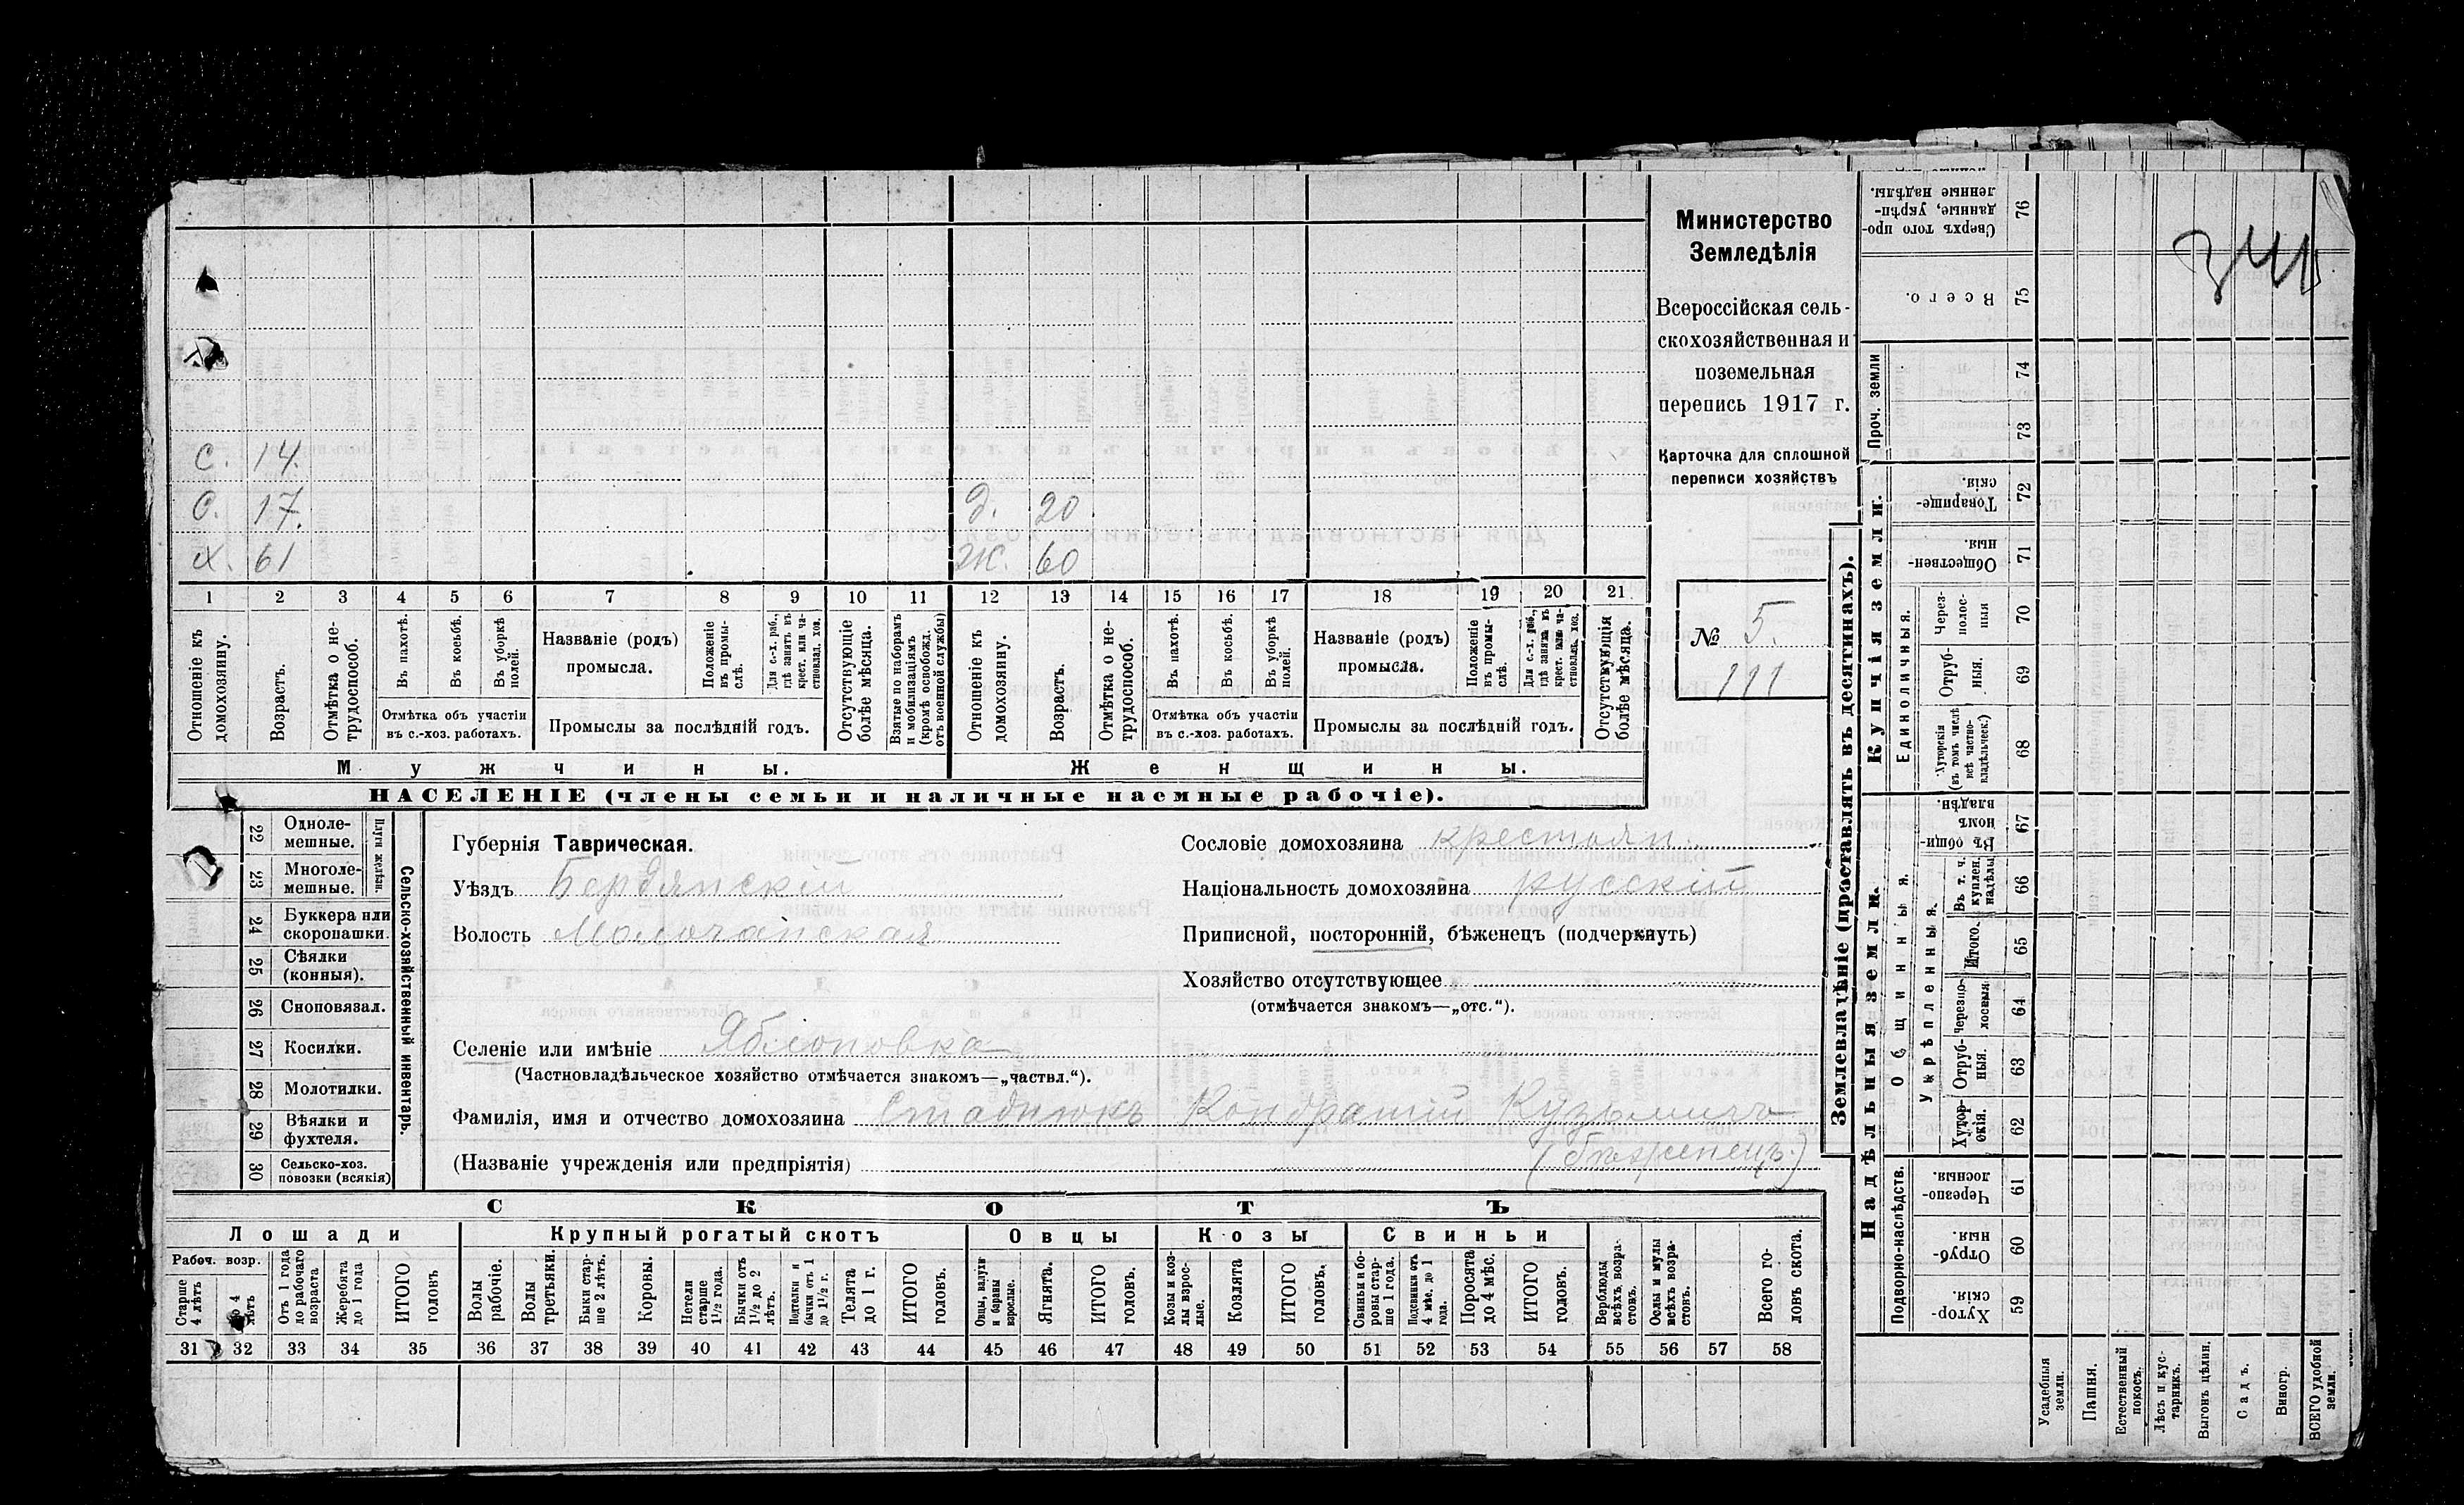 Министерство
Земледѣлія
Всероссійская сель-
скохозяйственная и
поземельная
перепись 1917 г.
Карточка для сплошной
переписи хозяйствъ
№ 5.
111
341
С. 14.
С. 17. д. 20
Х. 61 Ж. 60
1 2 3 4 5 6 7 8 9 10 11 12 13 14 15 16 17 18 19 20 21
Отношеніе къ домохозяину.
Возрастъ.
Отмѣтка о не-трудоспособ.
Въ пахотѣ.
Въ косьбѣ.
Въ уборкѣ полей.
Отмѣтка объ участіи
въ с.-хоз. работахъ.
Названіе (родъ)
промысла.
Положеніе въ промы-слѣ.
Для с.-х. раб., гдѣ занятъ въ крест. или ча-стновлад. хоз.
Промыслы за послѣдній годъ.
Отсутствующіе болѣе мѣсяца.
Взятые по наборамъ и мобилизаціямъ (кромѣ освобожд. отъ военной службы)
Отношеніе къ домохозяину.
Возрастъ.
Отмѣтка о не-трудоспособ.
Въ пахотѣ.
Въ косьбѣ.
Въ уборкѣ полей.
Отмѣтка объ участіи
въ с.-хоз. работахъ.
Названіе (родъ)
промысла.
Положеніе въ промы-слѣ.
Для с.-х. раб., гдѣ занята въ крест. или ча-стновлад. хоз.
Промыслы за послѣдній годъ.
Отсутствующія болѣе мѣсяца.
Мужчины. Женщины.
НАСЕЛЕНІЕ (члены семьи и наличные наемные рабочіе).
22 Однолемешные.
23 Многолемешные.
Плуги желѣзн.
24 Буккера или скоропашки.
25 Сѣялки (конныя).
26 Сноповязал.
27 Косилки.
28 Молотилки.
29 Вѣялки и фухтеля.
30 Сельско-хоз. повозки (всякія)
Сельско-хозяйственный инвентарь.
Губернія Таврическая.
Уѣздъ Бердянскій
Волость Молочанская
Сословіе домохозяина крестьян.
Національность домохозяина русскій
Приписной, посторонній, бѣженецъ (подчеркнуть)
Хозяйство отсутствующее
(отмѣчается знакомъ—„отс.“).
Селеніе или имѣніе Яблоновка
(Частновладѣльческое хозяйство отмѣчается знакомъ—„частвл.“).
Фамилія, имя и отчество домохозяина Стаднюкъ Кондратій Кузьмичъ
(Названіе учрежденія или предпріятія) (бѣженецъ.)
СКОТЪ
Лошади Крупный рогатый скотъ Овцы Козы Свиньи
Рабоч. возр.
Старше 4 лѣтъ
До 4 лѣтъ
Отъ 1 года до рабочаго возраста
Жеребята до 1 года
ИТОГО головъ
Волы рабочіе.
Волы третьяки.
Быки стар-ше 2 лѣтъ.
Коровы.
Нетели старше 1½ года.
Бычки отъ 1½ до 2 лѣтъ.
Подтелки и бычки отъ 1 до 1½ г.
Телята до 1 г.
ИТОГО головъ.
Овцы, валухи и бараны взрослые.
Ягнята.
ИТОГО головъ.
Козы и коз-лы взрос-лые.
Козлята
ИТОГО головъ.
Свиньи и бо-ровы стар-ше 1 года.
Подсвинки отъ 4 мѣс. до 1 года.
Поросята до 4 мѣс.
ИТОГО головъ.
Верблюды всѣхъ возра-стовъ.
Ослы и мулы всѣхъ возра-стовъ.
Всего го-ловъ скота.
31 32 33 34 35 36 37 38 39 40 41 42 43 44 45 46 47 48 49 50 51 52 53 54 55 56 57 58
Землевладѣніе (проставлять въ десятинахъ).
Надѣльныя земли.
Купчія земли.
Проч. земли
Подворно-наслѣдств.
Общинныя.
Укрѣпленныя.
Единоличныя.
Сверхъ того про-данные, укрѣп-ленные надѣлы. 76
Всего. 75
74
73
Товарище-скія. 72
Обществен-ныя. 71
Через-полос-ныя 70
Отруб-ныя. 69
Хуторскія (въ томъ числѣ всѣ частно-владѣльческ.) 68
Въ общи-номъ владѣн. 67
Въ т. ч. куплен. надѣлы 66
Итого. 65
Черезпо-лосныя 64
Отруб-ныя. 63
Хутор-скія. 62
Черезпо-лосныя 61
Отруб-ныя. 60
Хутор-скія. 59
Усадебныя земли.
Пашня.
Естественный покосъ.
Лѣсъ и кус-тарникъ.
Выгонъ цѣлин.
Садъ.
Виногр.
ВСЕГО удобной земли.